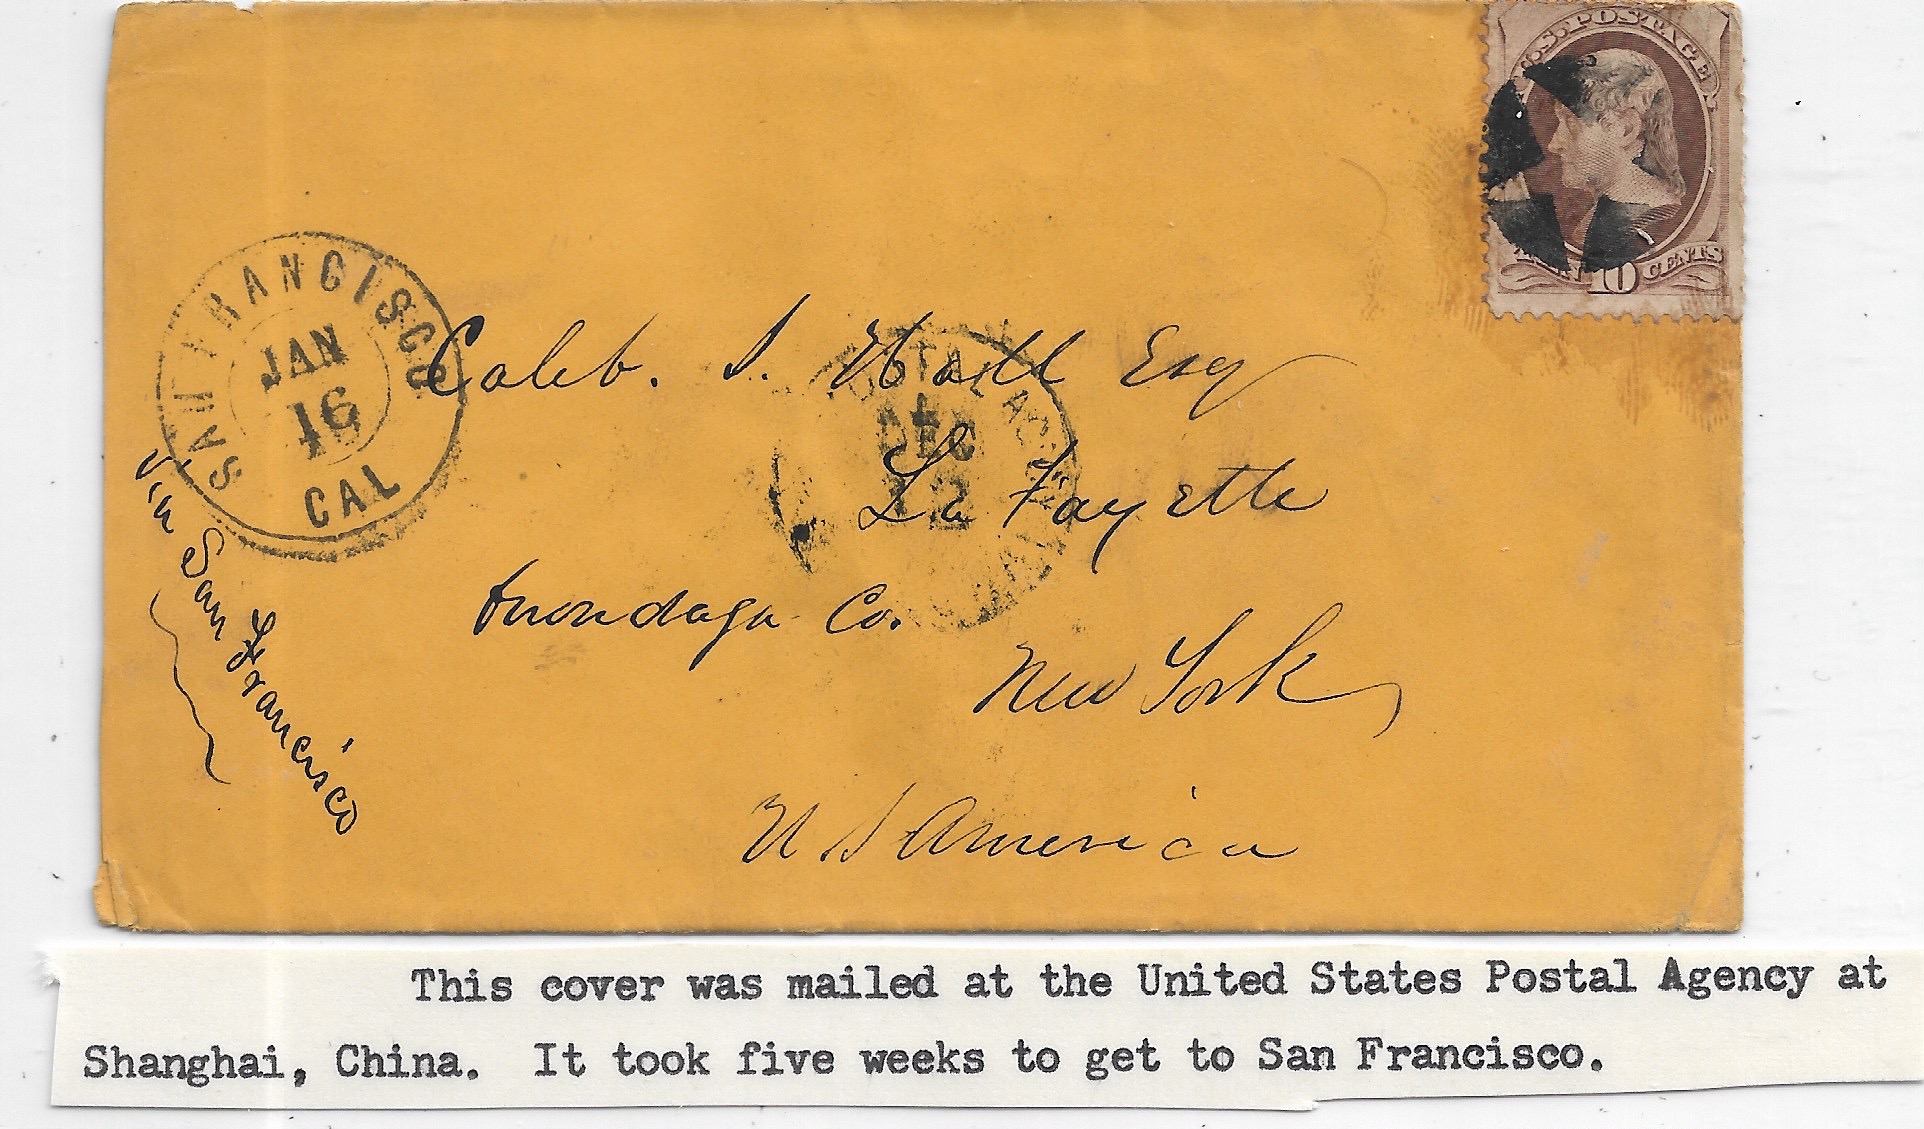 U.S. POSTAGE
TEN 10 CENTS
SAN FRANCISCO
JAN
16
CAL
POSTAL AGENCY
DEC
12
Caleb. S. Hall Esq
La Fayette
Onondaga Co.
New York
U. S America
Via San Francisco
This cover was mailed at the United States Postal Agency at
Shanghai, China. It took five weeks to get to San Francisco.